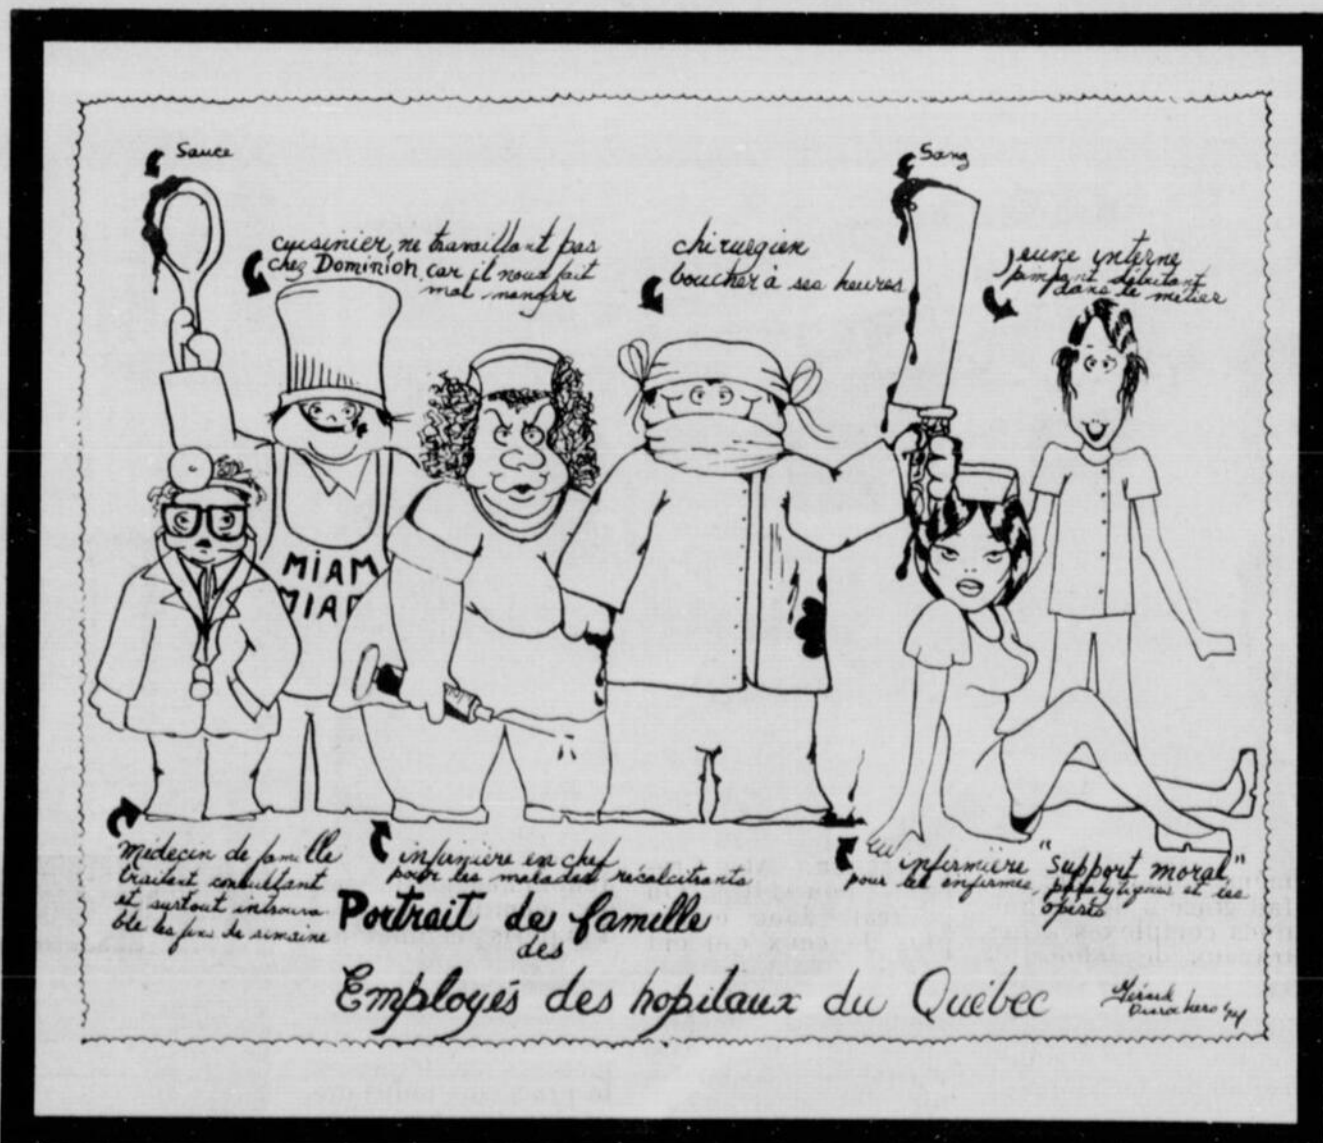 Sauce
cuisinier, ne travaillant pas
chez Dominion car il nous fait
mal manger
chirurgien
boucher à ses heures
Sang
jeune interne
pimpant débutant
dans le métier
MIAM
MIAM
médecin de famille
traitant consultant
et surtout introuva
ble les fins de semaine
infirmière en chef
pour les malades récalcitrants
infirmière "support moral"
pour les infirmes, paralytiques et les
opérés
Portrait de famille
des
Employés des hopitaux du Québec